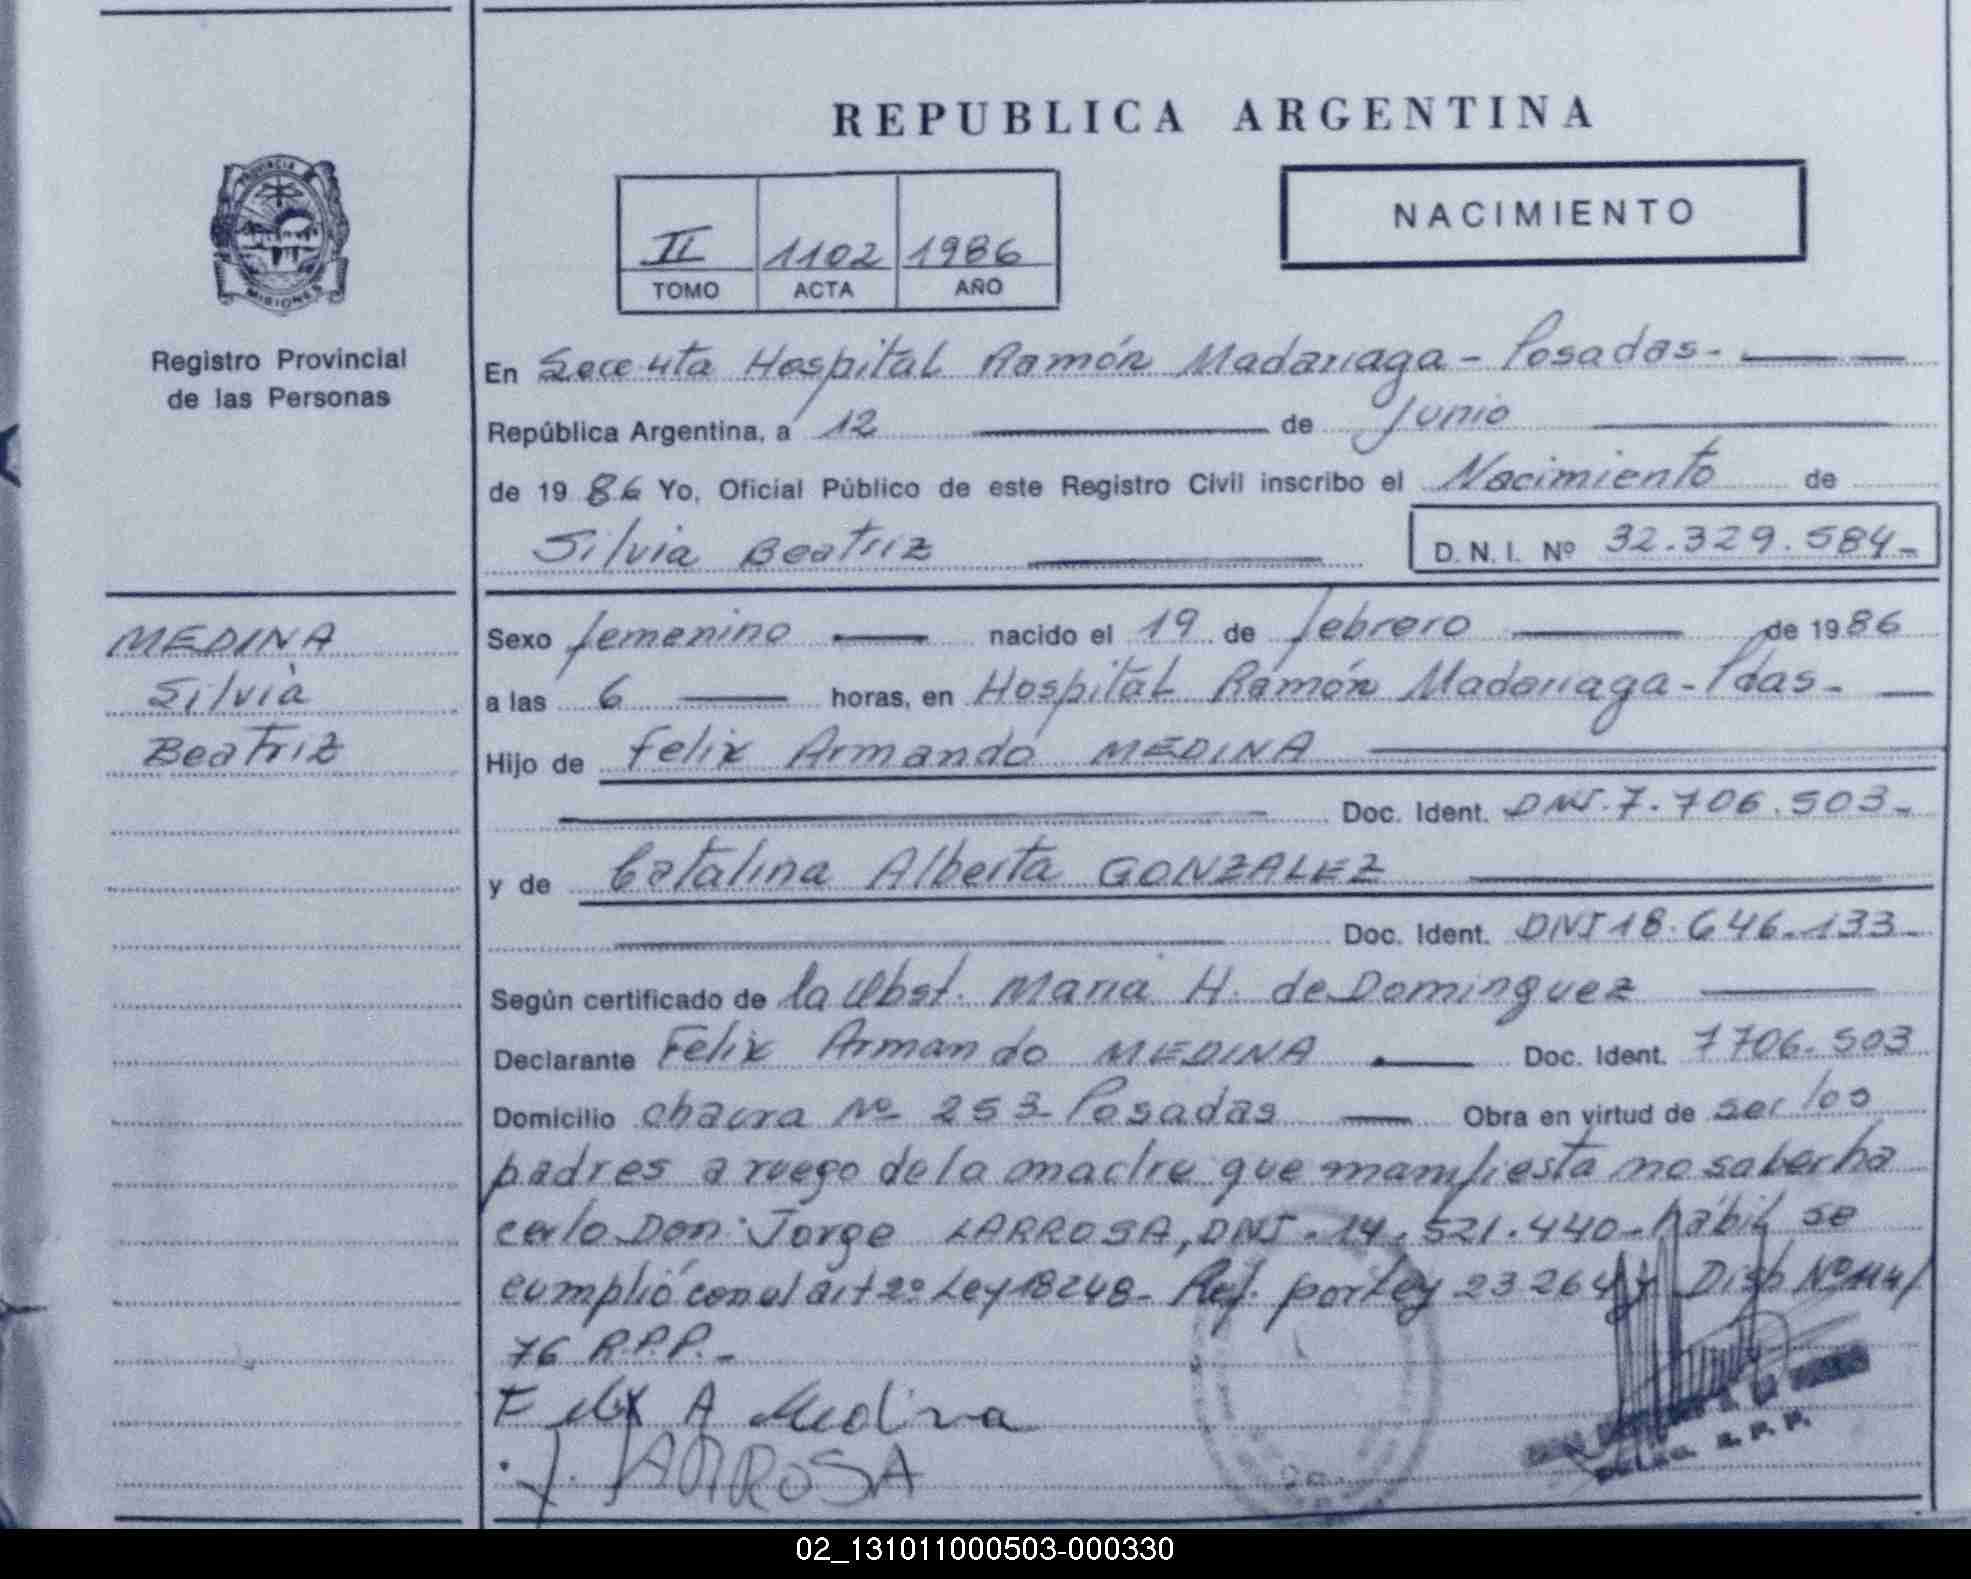 REPUBLICA ARGENTINA
PROVINCIA
MISIONES
Registro Provincial
de las Personas
NACIMIENTO
II 1102 1986
TOMO ACTA AÑO
En Hospital Ramón Madariaga - Posadas-
República Argentina, a 12 de Junio
de 1986 Yo, Oficial Público de este Registro Civil inscribo el Nacimiento de
Silvia Beatriz D.N.I. Nº 32.329.584-
MEDINA
Silvia
Beatriz
Sexo femenino nacido el 19 de febrero de 1986
a las 6 horas, en Hospital Ramón Madariaga - Pdas-
Hijo de Felix Armando MEDINA
Doc. Ident. DNI.7.706.503-
y de Catalina Alberta GONZALEZ
Doc. Ident. DNI 18.646.133-
Según certificado de la Obst. Maria H. de Dominguez
Declarante Felix Armando MEDINA Doc. Ident. 7706.503
Domicilio chacra Nº 253 Posadas Obra en virtud de ser los
padres a ruego de la madre que manifiesta no saber ha
cerlo Don Jorge LARROSA, DNI. 14.521.440- hábil se
cumplió con el art 2º Ley 18248- Ref. por Ley 23264 y Disp Nº
76 R.P.P.-
Felix A Medina
J. LARROSA
R. P. P.
02_131011000503-000330